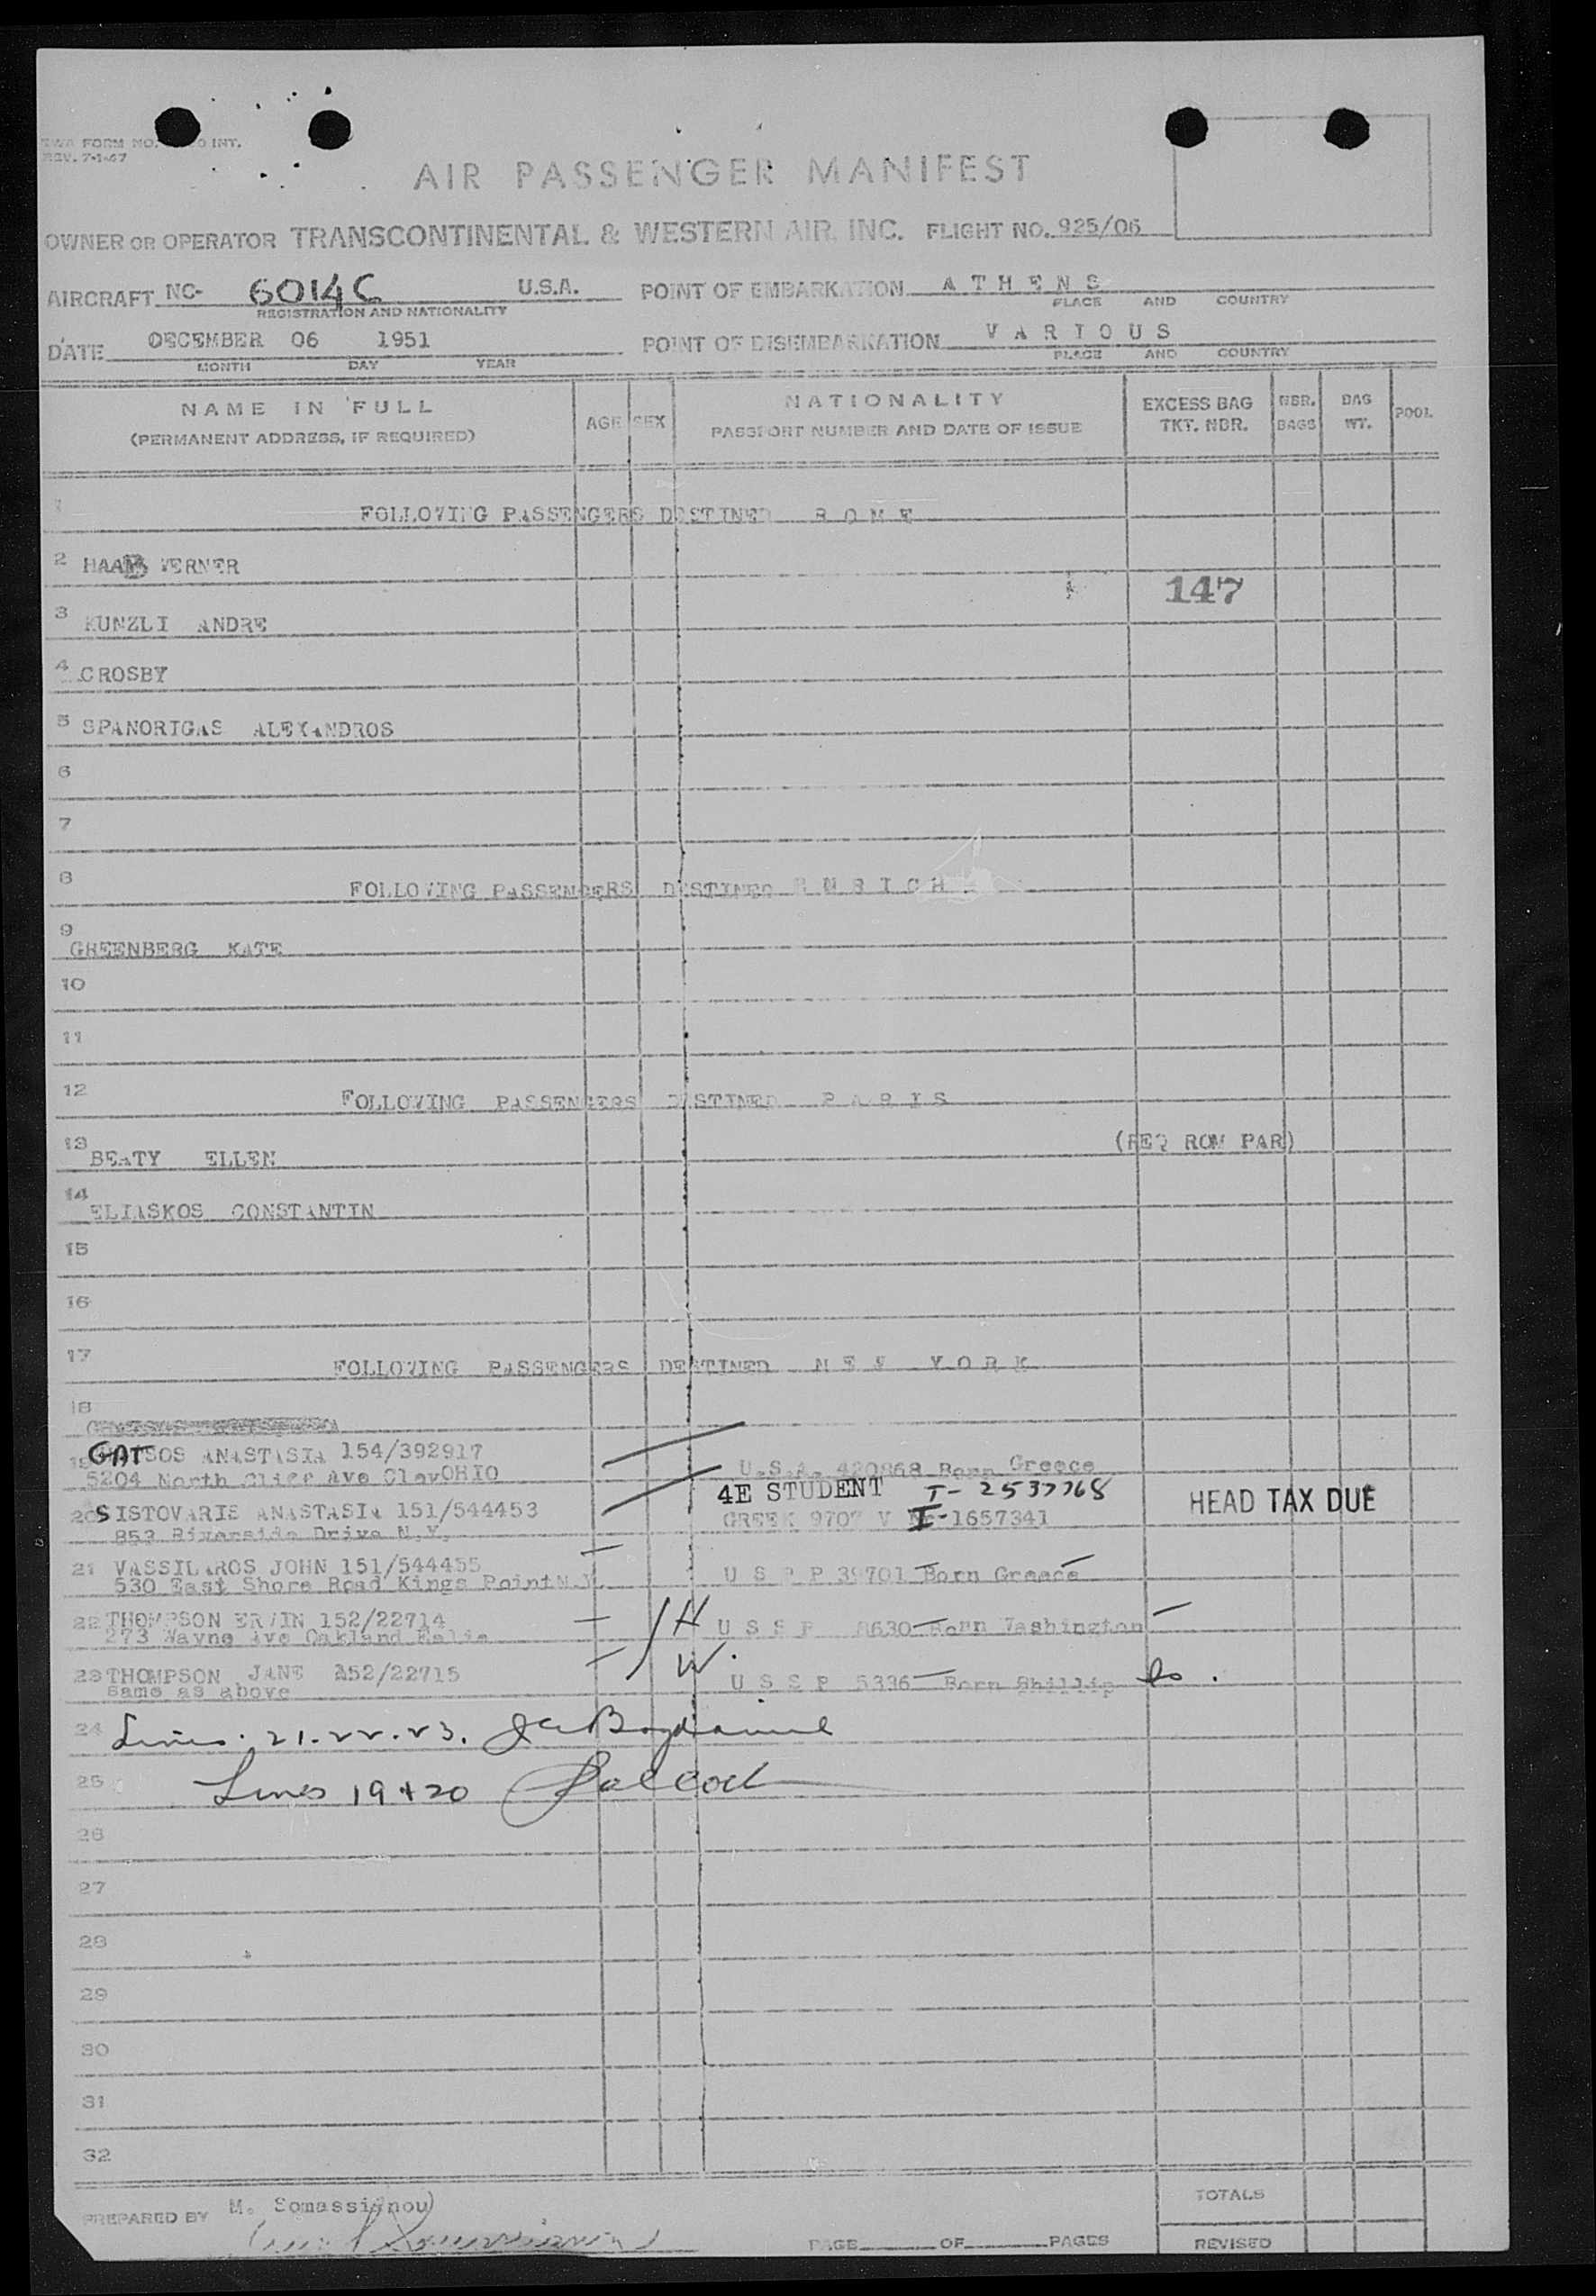 TWA FORM NO. O INT.
REV. 7-1-47
AIR PASSENGER MANIFEST
OWNER OR OPERATOR TRANSCONTINENTAL & WESTERN AIR, INC. FLIGHT NO. 925/06
AIRCRAFT NC- 6014C U.S.A. POINT OF EMBARKATION A T H E N S
REGISTRATION AND NATIONALITY PLACE AND COUNTRY
DATE DECEMBER 06 1951 POINT OF DISEMBARKATION V A R I O U S
MONTH DAY YEAR PLACE AND COUNTRY
NAME IN FULL
(PERMANENT ADDRESS, IF REQUIRED)
AGE
SEX
NATIONALITY
PASSPORT NUMBER AND DATE OF ISSUE
EXCESS BAG
TKT. NBR.
NBR.
BAGS
BAG
WT.
POOL
1 FOLLOWING PASSENGERS DESTINED R O M E
2 VERNER
147
3 KUNZLI ANDRE
4 CROSBY
5 SPANORIGAS ALEXANDROS
6
7
8 FOLLOWING PASSENGERS DESTINED
9 GREENBERG KATE
10
11
12 FOLLOWING PASSENGERS DESTINED P A R I S
13 BEATY ELLEN (REQ ROM PAR)
14 ELIASKOS CONSTANTIN
15
16
17 FOLLOWING PASSENGERS DESTINED N E W Y O R K
18
19 GATSOS ANASTASIA 154/392917
5204 North Ave ClevOHIO U.S.A. 420868 Born Greece
4E STUDENT T-2537768
20 SISTOVARIS ANASTASIA 151/544453 HEAD TAX DUE
853 Riverside Drive N.Y. GREEK 9707 V I-1657341
21 VASSILAROS JOHN 151/544455
530 East Shore Road Kings Point N.Y. U S P P 39701 Born Greece
22 THOMPSON ERVIN 152/22714 H
273 Wayne Ave Oakland U S S P 8630 Born Washington
23 THOMPSON JANE 152/22715 W.
same as above U S S P 5336 Born Phillip
24 Lines. 21. 22. 23.
25 Lines 19 + 20
26
27
28
29
30
31
32
TOTALS
PREPARED BY M. Somassignou
PAGE OF PAGES REVISED